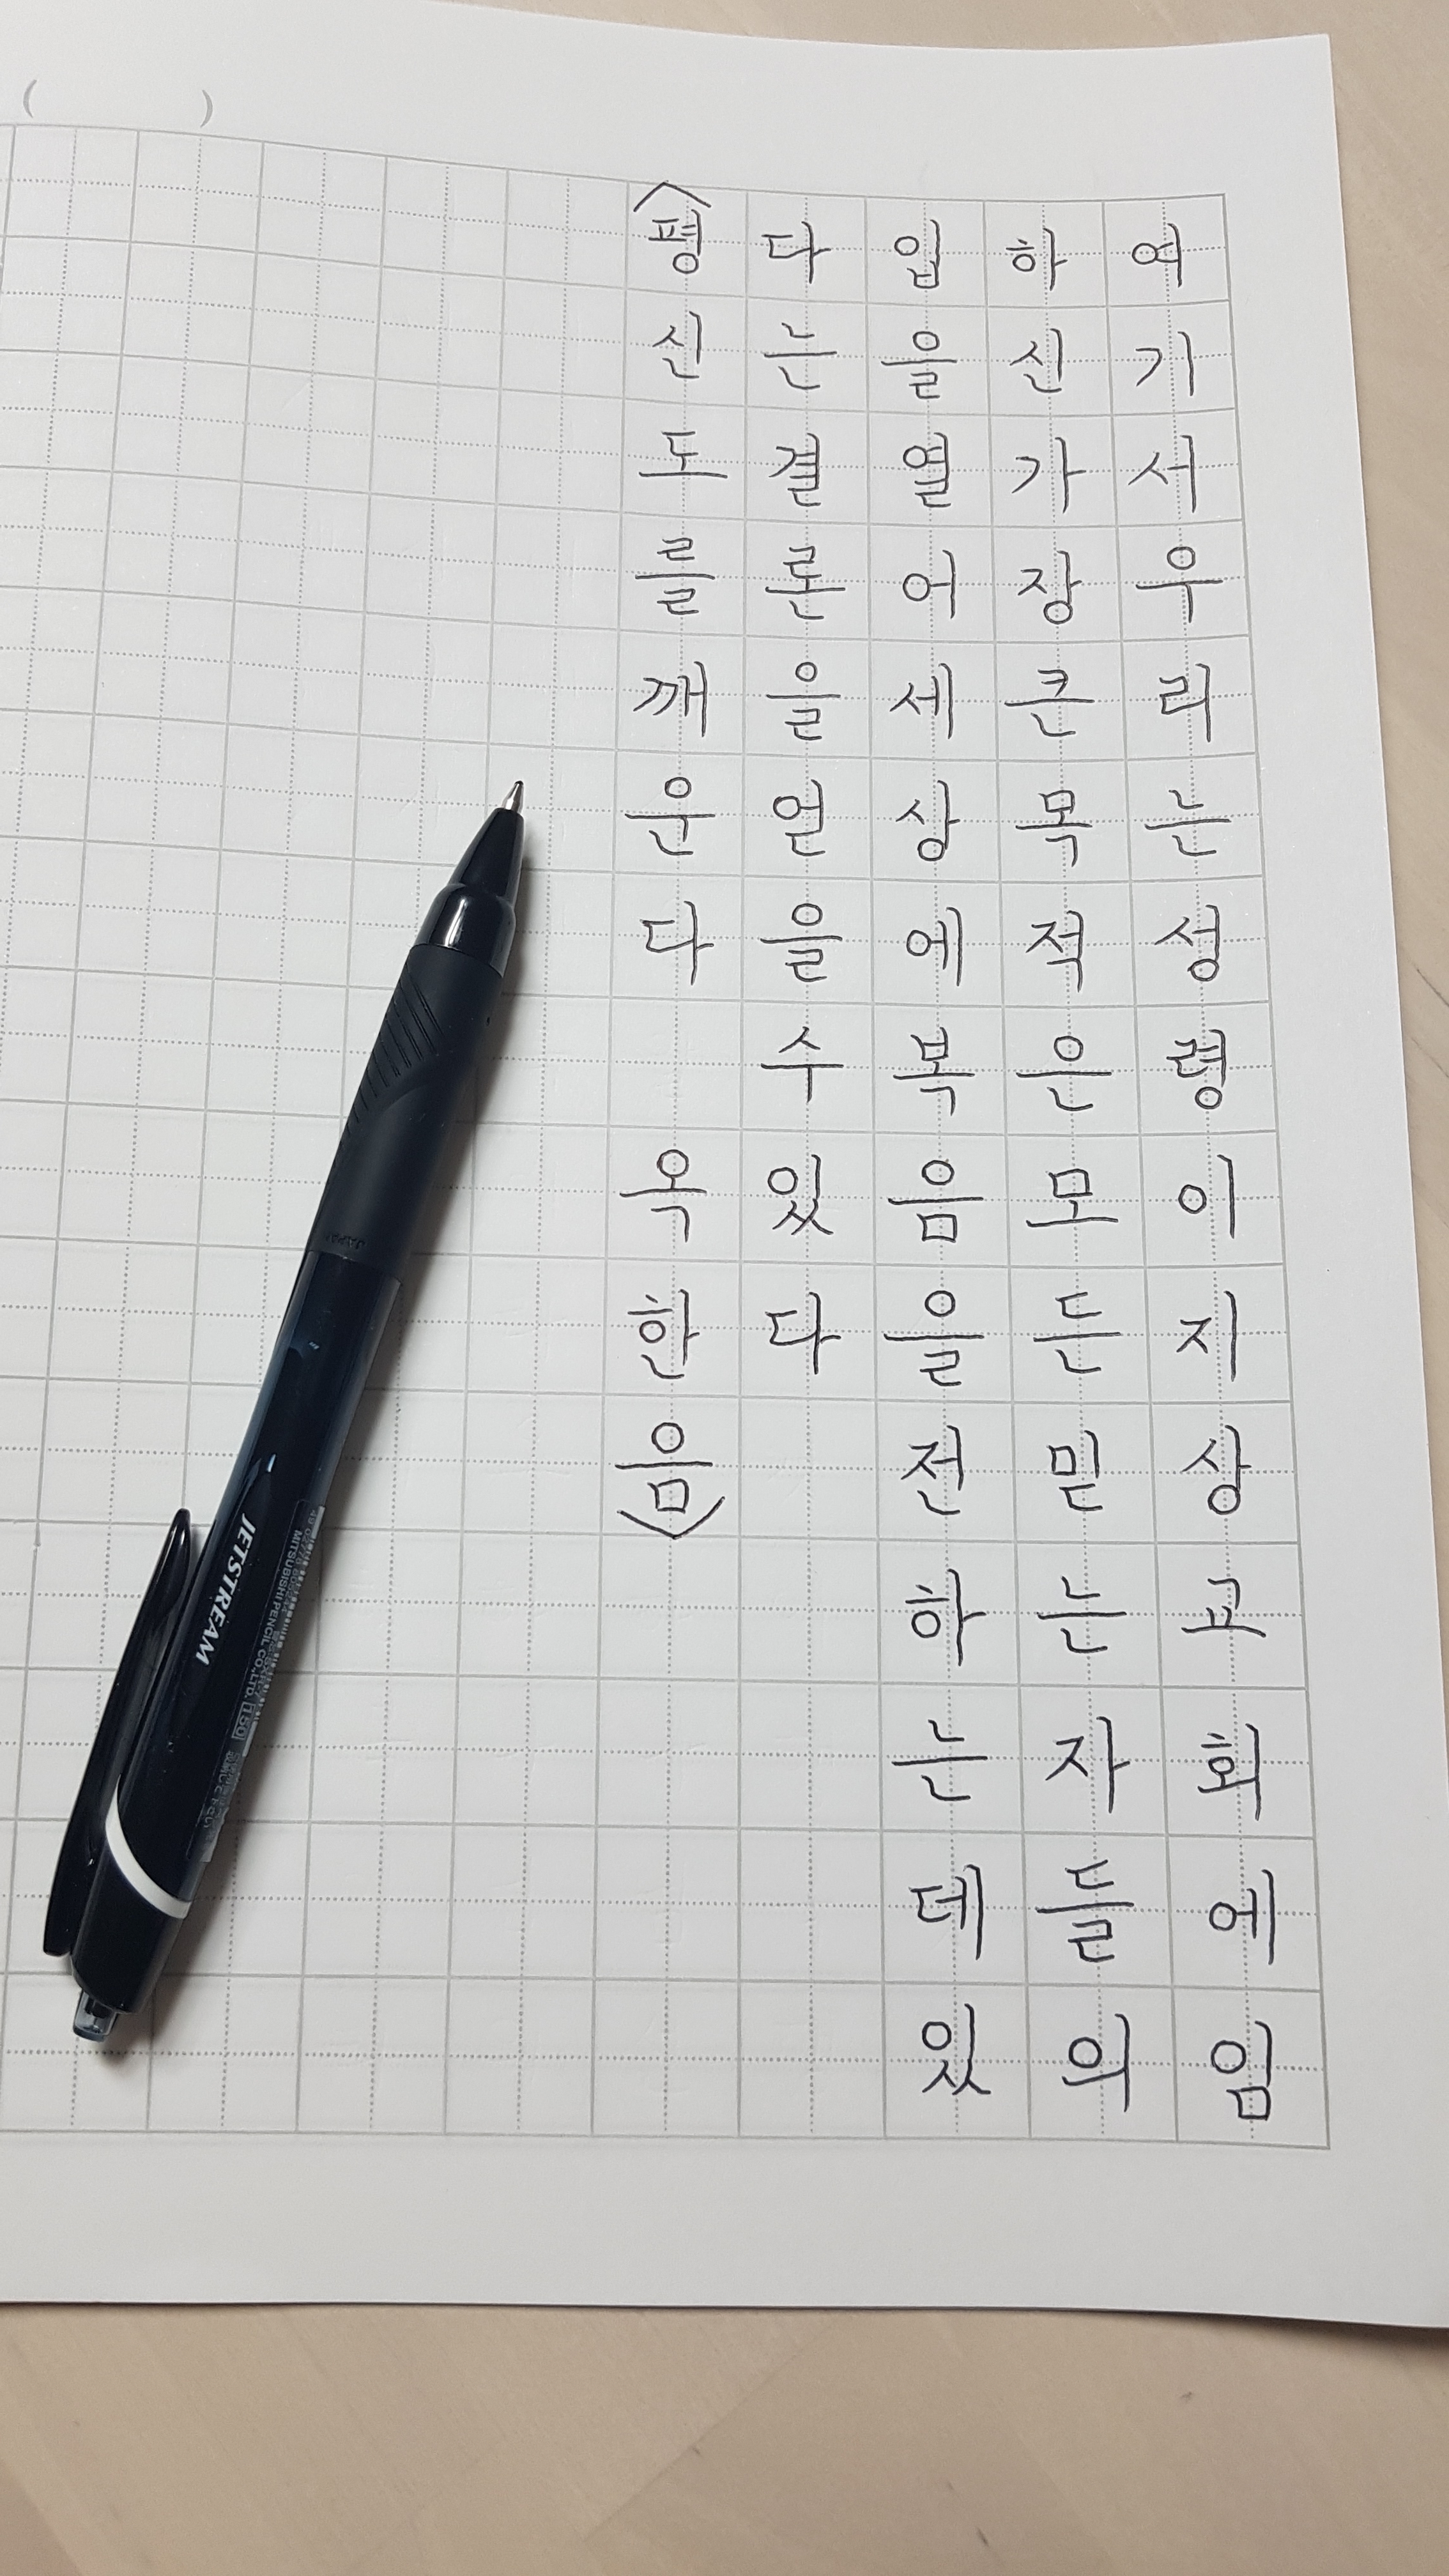 여기서우리는성령이지상교회에임
하신가장큰목적은모든믿는자들의
입을열어세상에복음을전하는데있
다는결론을얻을수있다
<평신도를깨운다 옥한음>
( )
JETSTREAM
MITSUBISHI PENCIL CO.,LTD. [150]
JAPAN